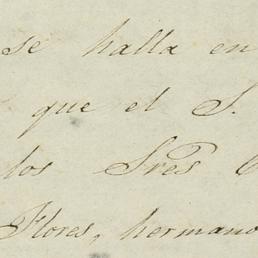 se halla en
que el S.
los Sres
Flores, hermano